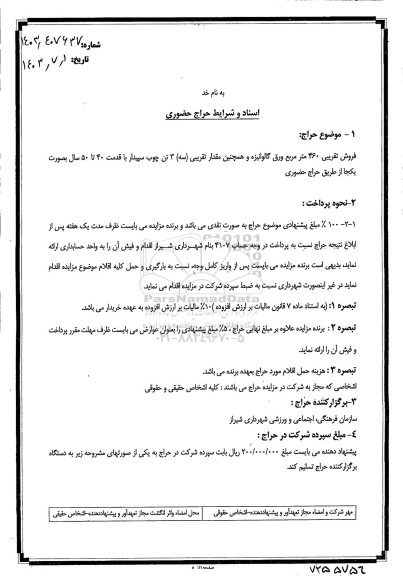 شماره: ۱۴۰۳,۴۰۷۶۳۷
تاریخ: ۱۴۰۳,۷,۱
به نام خد
اسناد و شرایط حراج حضوری
۱- موضوع حراج:
فروش تقریبی ۴۶۰ متر مربع ورق گالوانیزه و همچنین مقدار تقریبی (سه) ۳ تن چوب سپیدار با قدمت ۴۰ تا ۵۰ سال بصورت
یکجا از طریق حراج حضوری
۲-نحوه پرداخت :
۲-۱- ۱۰۰ ٪ مبلغ پیشنهادی موضوع حراج به صورت نقدی می باشد و برنده مزایده می بایست ظرف مدت یک هفته پس از
ابلاغ نتیجه حراج نسبت به پرداخت در وجه حساب ۴۱۰۷ بنام شهرداری شیراز اقدام و فیش آن را به واحد حسابداری ارائه
نماید، بدیهی است برنده مزایده می بایست پس از واریز کامل وجه، نسبت به بارگیری و حمل کلیه اقلام موضوع مزایده اقدام
نماید در غیر اینصورت شهرداری نسبت به ضبط سپرده شرکت در مزایده اقدام می نماید.
تبصره ۱: (به استناد ماده ۷ قانون مالیات بر ارزش افزوده )۱۰٪ مالیات بر ارزش افزوده به عهده خریدار می باشد.
تبصره ۲ : برنده مزایده علاوه بر مبلغ نهایی حراج ، ۵٪ مبلغ پیشنهادی را بعنوان عوارض می بایست ظرف مهلت مقرر پرداخت
و فیش آن را ارائه نماید.
تبصره ۳ : هزینه حمل اقلام مورد حراج بعهده برنده می باشد.
اشخاصی که مجاز به شرکت در مزایده حراج می باشند : کلیه اشخاص حقیقی و حقوقی
۳-برگزارکننده حراج :
سازمان فرهنگی، اجتماعی و ورزشی شهرداری شیراز
۴- مبلغ سپرده شرکت در حراج :
پیشنهاد دهنده می بایست مبلغ ۲۰۰/۰۰۰/۰۰۰ ریال بابت سپرده شرکت در حراج به یکی از صورتهای مشروحه زیر به دستگاه
برگزارکننده حراج تسلیم کند.
مهر شرکت و امضاء مجاز تعهدآور و پیشنهاددهنده-اشخاص حقوقی
محل امضاء واثر انگشت مجاز تعهدآور و پیشنهاددهنده-اشخاص حقیقی
ParsNamadData
۰۲۱-۸۸۳۴۹۶۷۰-۵
۷۲۵۵۷۵۶